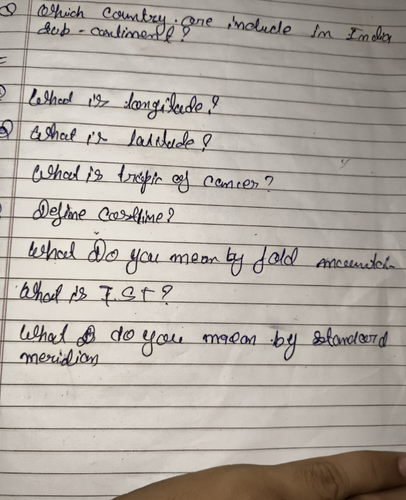 Q which country are include in India
sub-continent?
What is longitude?
Q What is latitude?
What is tropic of cancer?
Define costline?
What Do you mean by fold
What is I.S.t?
What do you mean by standard
meridian